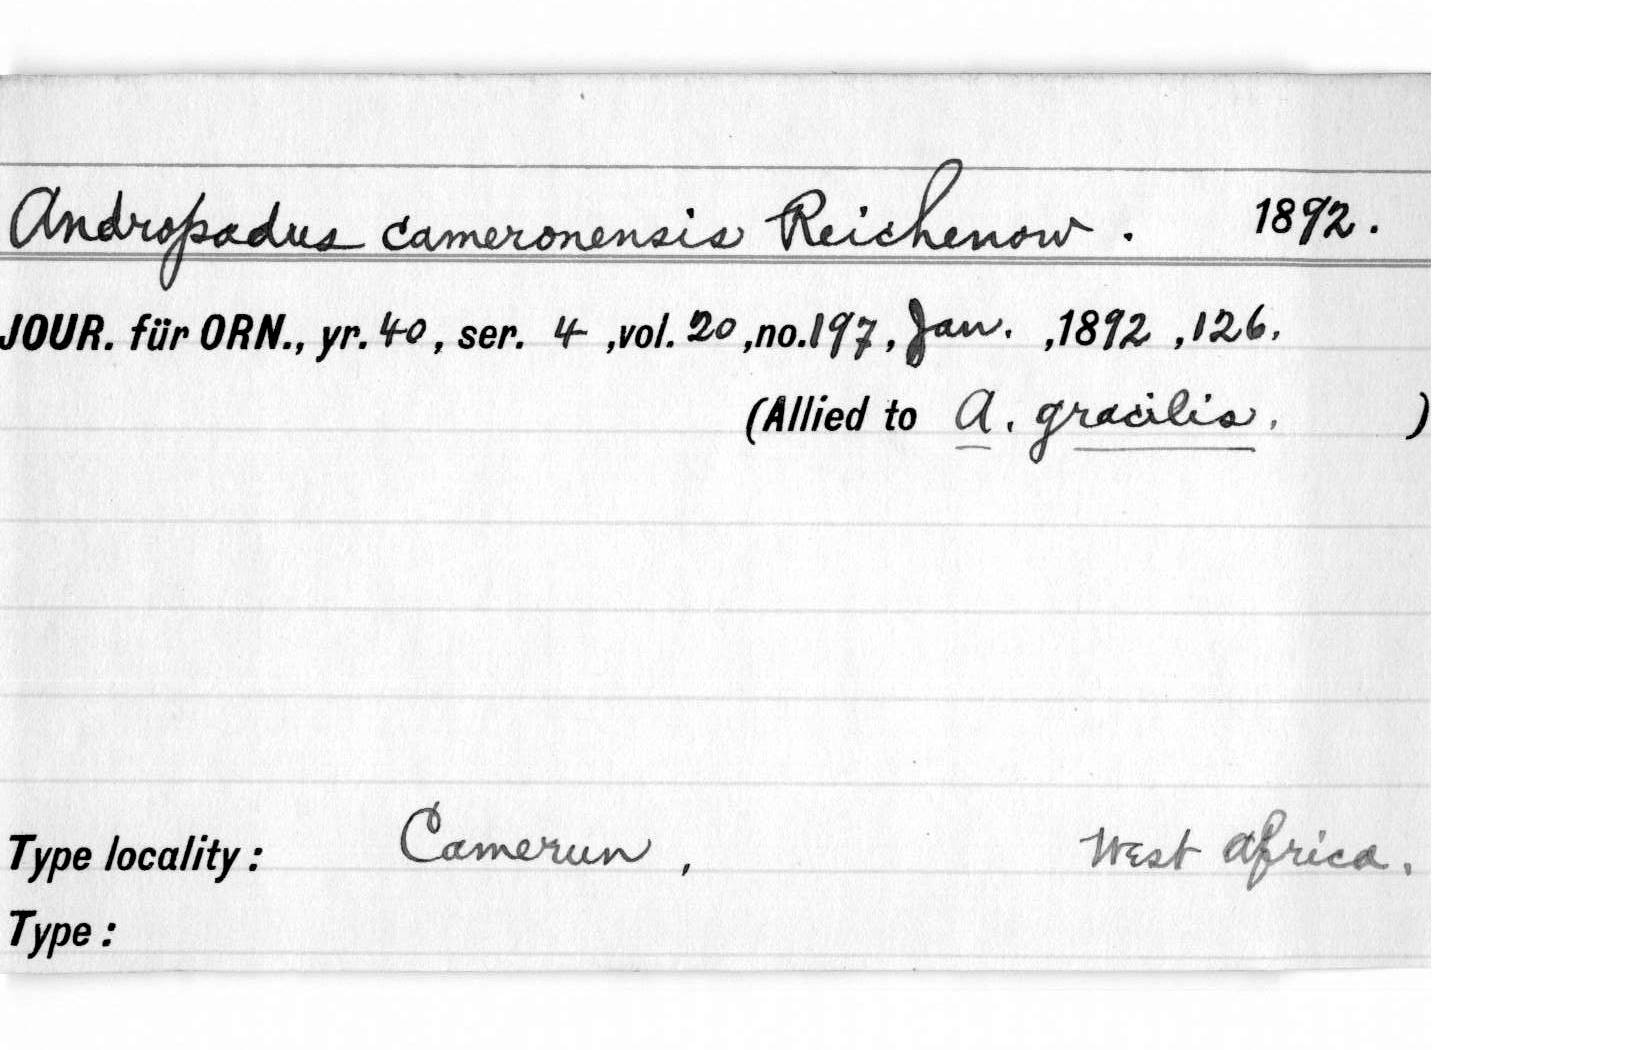 Andropadus cameronensis Reichenow. 1892.
JOUR. für ORN., yr. 40, ser. 4, vol. 20, no. 197, Jan., 1892, 126.
(Allied to A. gracilis.)
Type locality: Camerun, West Africa.
Type: